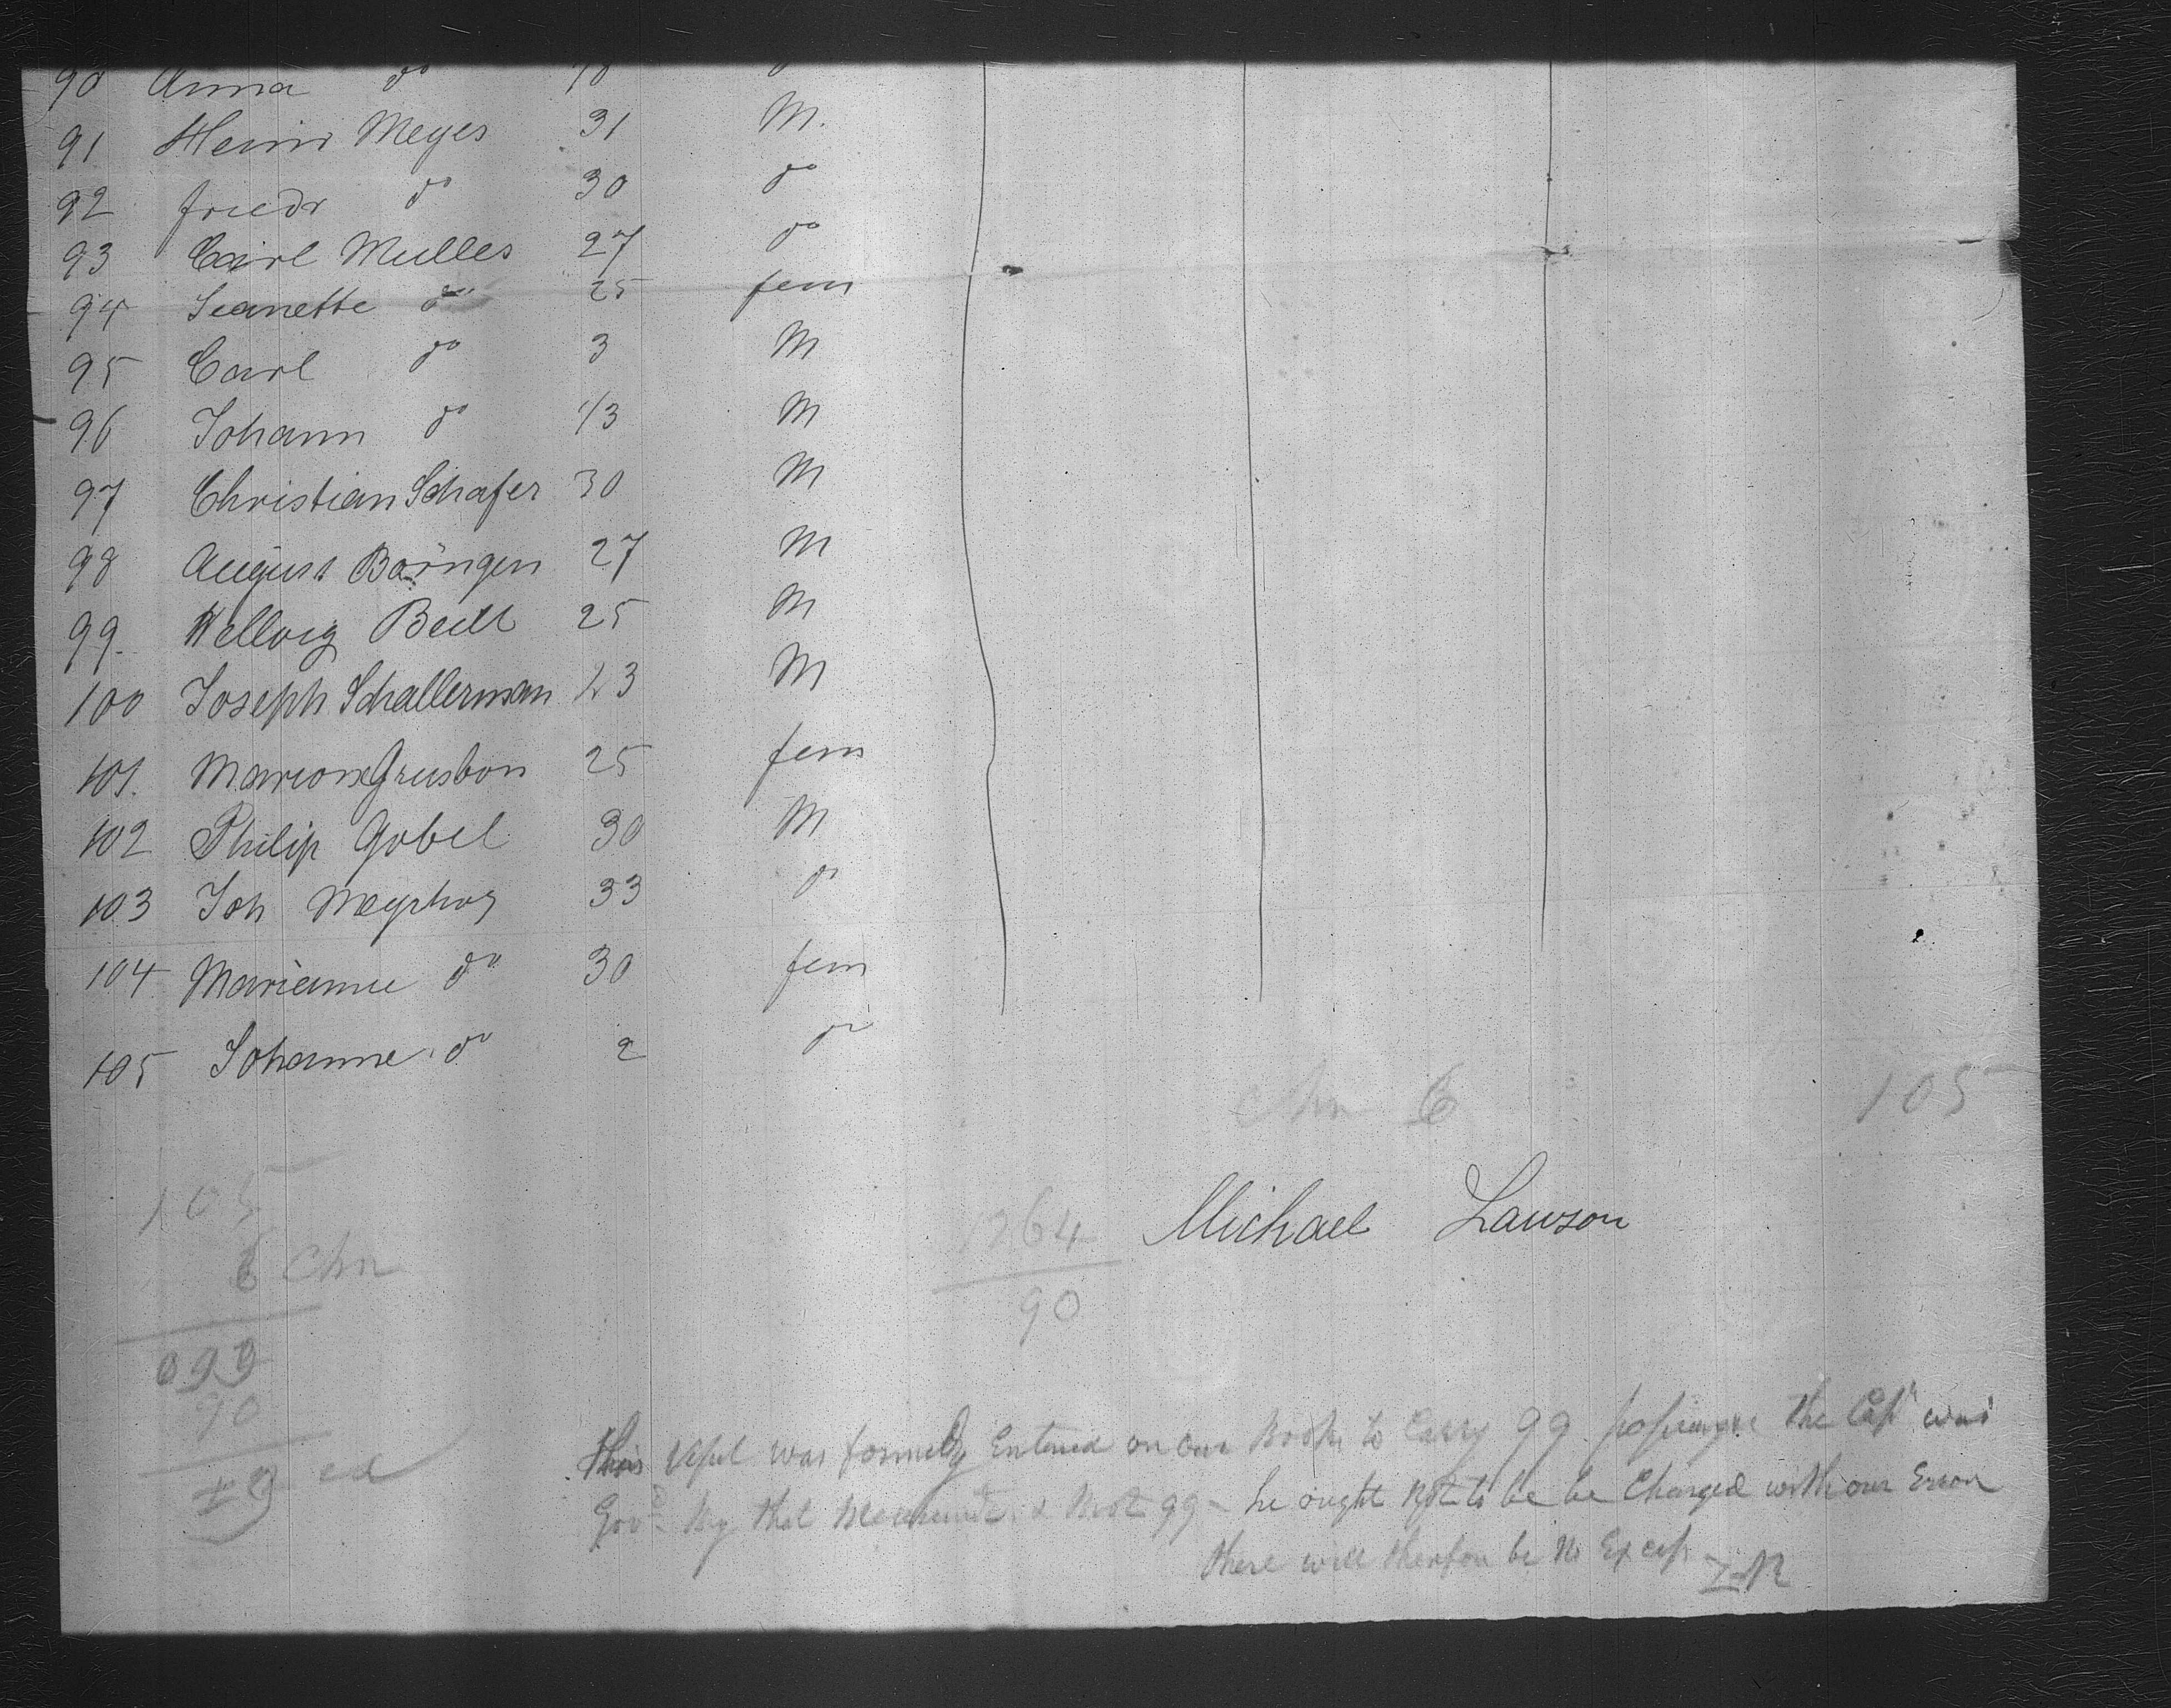 90 Anna do 10 do
91 Heinr Meyes 31 M.
92 friedr do 30 do
93 Carl Mulles 27 do
94 Jeanette do 25 fem
95 Carl do 3 M
96 Johann do 1/3 M
97 Christian Schafer 30 M
98 August Boringen 27 M
99. Hellwig Beill 25 M
100 Joseph Schallerman 23 M
101. Marion Grusbon 25 fem
102 Philip Gobel 30 M
103 Joh Meyrhoz 33 do
104 Marianne do 30 fem
105 Johanne do 2 do
Chn 6 105
105
6 Chn
1264
Michael Lawson
90
099
90
9 ex
This Vessel was formerly Entered on our Books to Carry 99 passengers the Capn was
Govd by that Measurmt & Not 99 - he ought Not to be be Charged with our Error
there will therefore be No Excess